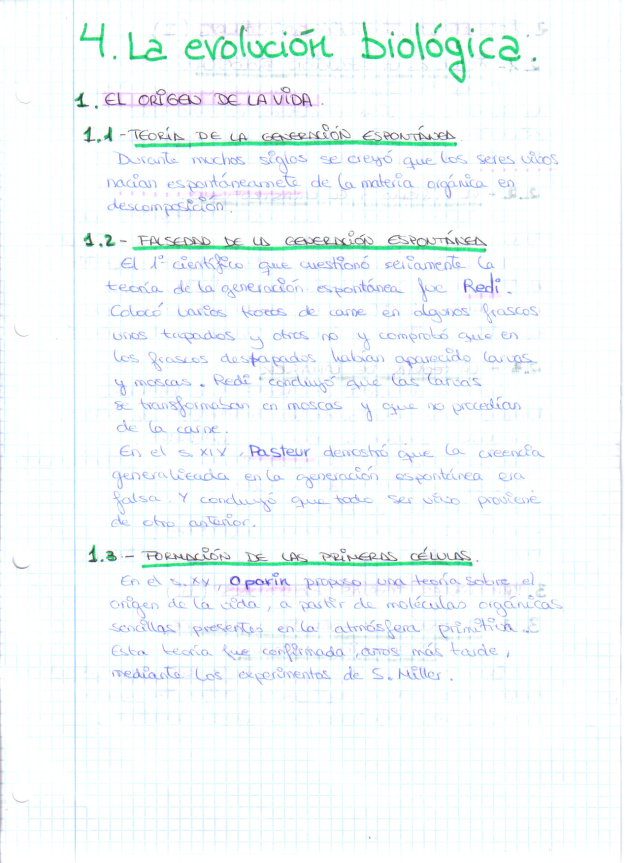 4. La evolución biológica.
1. EL ORIGEN DE LA VIDA.
1.1 - TEORÍA DE LA GENERACIÓN ESPONTÁNEA
Durante muchos siglos se creyó que los seres vivos
nacían espontáneamete de la materia orgánica en
descomposición.
1.2 - FALSEDAD DE LA GENERACIÓN ESPONTÁNEA
El 1º científico que cuestionó seriamente la
teoría de la generación espontánea fue Redi.
Colocó varios trozos de carne en algunos frascos
unos tapados y otros no y comprobó que en
los frascos destapados habían aparecido larvas
y moscas. Redi concluyó que las larvas
se transformaban en moscas y que no procedían
de la carne.
En el s. XIX, Pasteur demostró que la creencia
generalizada en la generación espontánea era
falsa. Y concluyó que todo ser vivo proviene
de otro anterior.
1.3 - FORMACIÓN DE LAS PRIMERAS CÉLULAS.
En el s. XX, Oparin propuso una teoría sobre el
origen de la vida, a partir de moléculas orgánicas
sencillas presentes en la atmósfera primitiva.
Esta teoría fue confirmada, años más tarde,
mediante los experimentos de S. Miller.